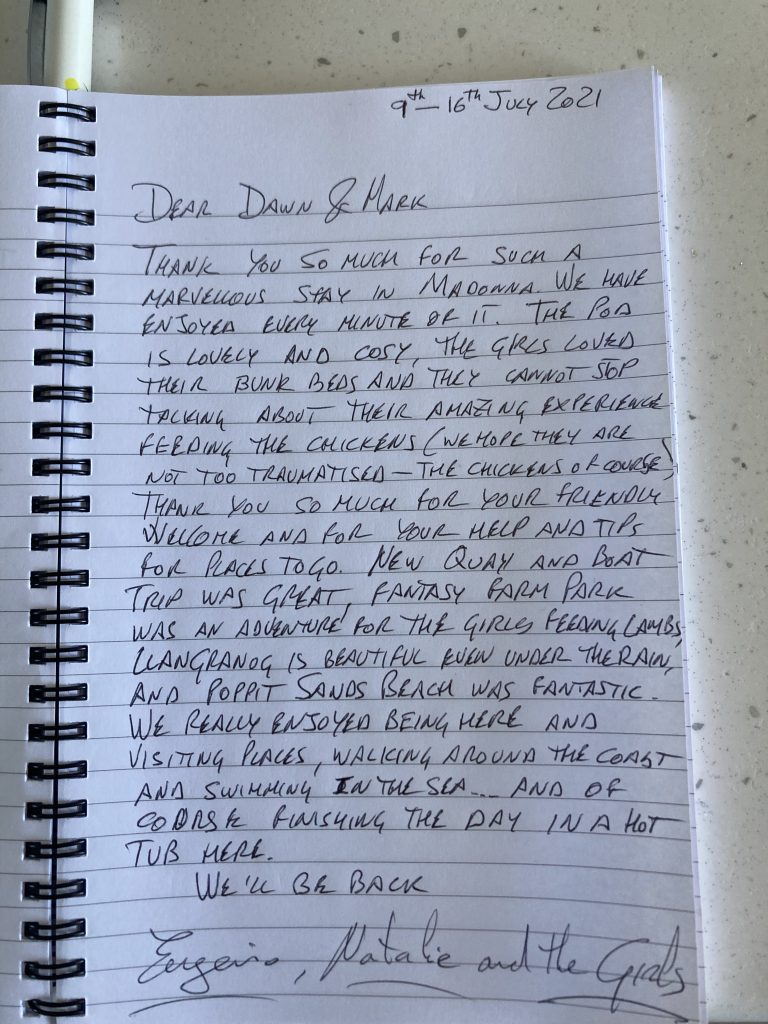 9th – 16th July 2021
Dear Dawn & Mark
Thank you so much for such a
marvellous stay in Madonna. We have
enjoyed every minute of it. The Pod
is lovely and cosy, the girls loved
their bunk beds and they cannot stop
talking about their amazing experience
feeding the chickens (we hope they are
not too traumatised – the chickens of course)
Thank you so much for your friendly
welcome and for your help and tips
for places to go. New Quay and boat
trip was great, Fantasy Farm Park
was an adventure for the girls feeding lambs,
Llangranog is beautiful even under the rain,
and Poppit Sands Beach was fantastic.
We really enjoyed being here and
visiting places, walking around the coast
and swimming in the sea... and of
course finishing the day in a hot
tub here.
We'll be back
Eugenio, Natalie and the Girls